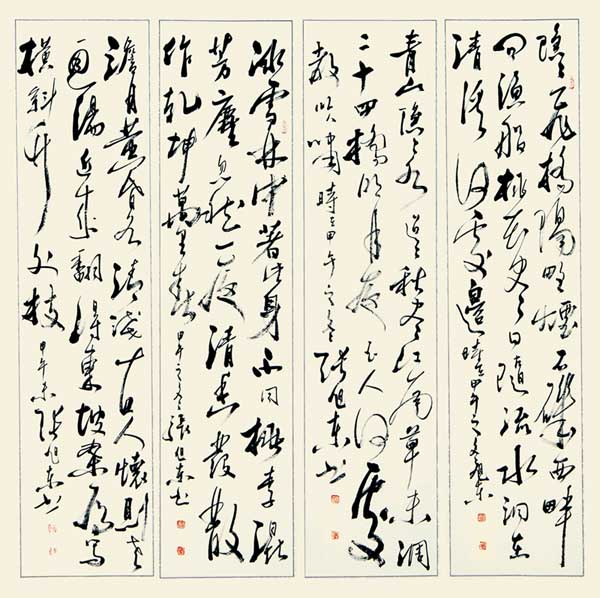 隱隱飛橋隔野煙石磯西畔
問漁船桃花盡日隨流水洞在
清溪何處邊時在甲午之冬旭東
青山隱隱水迢迢秋盡江南草未凋
二十四橋明月夜玉人何處
教吹嘯時在甲午之冬張旭東書
冰雪林中著此身不同桃李混
芳塵忽然一夜清香發散
作乾坤萬里春甲午之冬張旭東書
澹月黃昏水清淺人懷則老
逋近來翻得東坡案寫
橫斜竹外枝甲午張旭東書